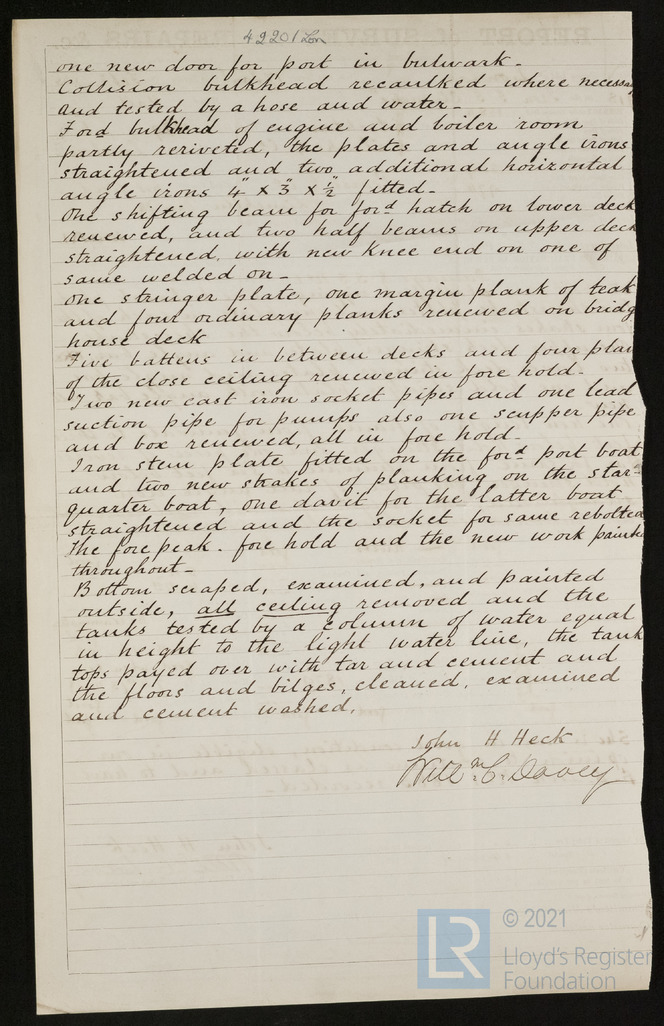 42201 Lon
one new door for port in bulwark -
Collision bulkhead recaulked where necessa
and tested by a hose and water -
Ford bulkhead of engine and boiler room
partly reriveted, the plates and angle irons
straightened and two additional horizontal
angle irons 4" x 3" x ½" fitted -
One shifting beam for ford hatch on lower deck
renewed, and two half beams on upper deck
straightened, with new knee end on one of
same welded on -
One stringer plate, one margin plank of teak
and four ordinary planks renewed on bridg
house deck
Five battens in between decks and four plan
of the close ceiling renewed in fore hold -
Two new cast iron socket pipes and one lead
suction pipe for pumps also one scupper pipe
and box renewed, all in fore hold -
Iron stem plate fitted on the ford port boat
and two new strakes of planking on the star-
quarter boat, one davit for the latter boat
straightened and the socket for same rebolted
The fore peak - fore hold and the new work painte
throughout -
Bottom scraped, examined, and painted
outside, all ceiling removed and the
tanks tested by a column of water equal
in height to the light water line, the tank
tops payed over with tar and cement and
the floors and bilges, cleaned, examined
and cement washed.
John H Heck
Willm C. Davey
LR
© 2021
Lloyd's Register
Foundation